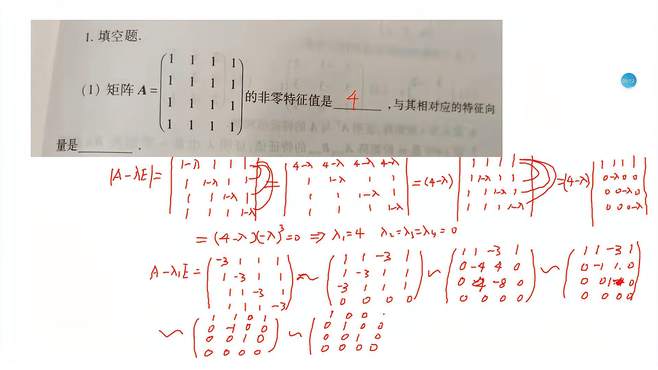 1. 填空题.
(1) 矩阵 A = (1 1 1 1
1 1 1 1
1 1 1 1
1 1 1 1) 的非零特征值是 4 ,与其相对应的特征向
量是 .
|A-λE| = |1-λ 1 1 1
1 1-λ 1 1
1 1 1-λ 1
1 1 1 1-λ| = |4-λ 4-λ 4-λ 4-λ
1 1-λ 1 1
1 1 1-λ 1
1 1 1 1-λ| = (4-λ) |1 1 1 1
1 1-λ 1 1
1 1 1-λ 1
1 1 1 1-λ| = (4-λ) |1 1 1 1
0 -λ 0 0
0 0 -λ 0
0 0 0 -λ|
= (4-λ)(-λ)³ = 0 ⇒ λ₁=4 λ₂=λ₃=λ₄=0
A-λ₁E = (-3 1 1 1
1 -3 1 1
1 1 -3 1
1 1 1 -3) ~ (1 1 -3 1
1 -3 1 1
-3 1 1 1
0 0 0 0) ~ (1 1 -3 1
0 -4 4 0
0 4 -8 0
0 0 0 0) ~ (1 1 -3 1
0 -1 1 0
0 0 1 0
0 0 0 0)
~ (1 1 0 1
0 -1 0 0
0 0 1 0
0 0 0 0) ~ (1 0 0
0 1 0 0
0 0 1 0
0 0 0 0)